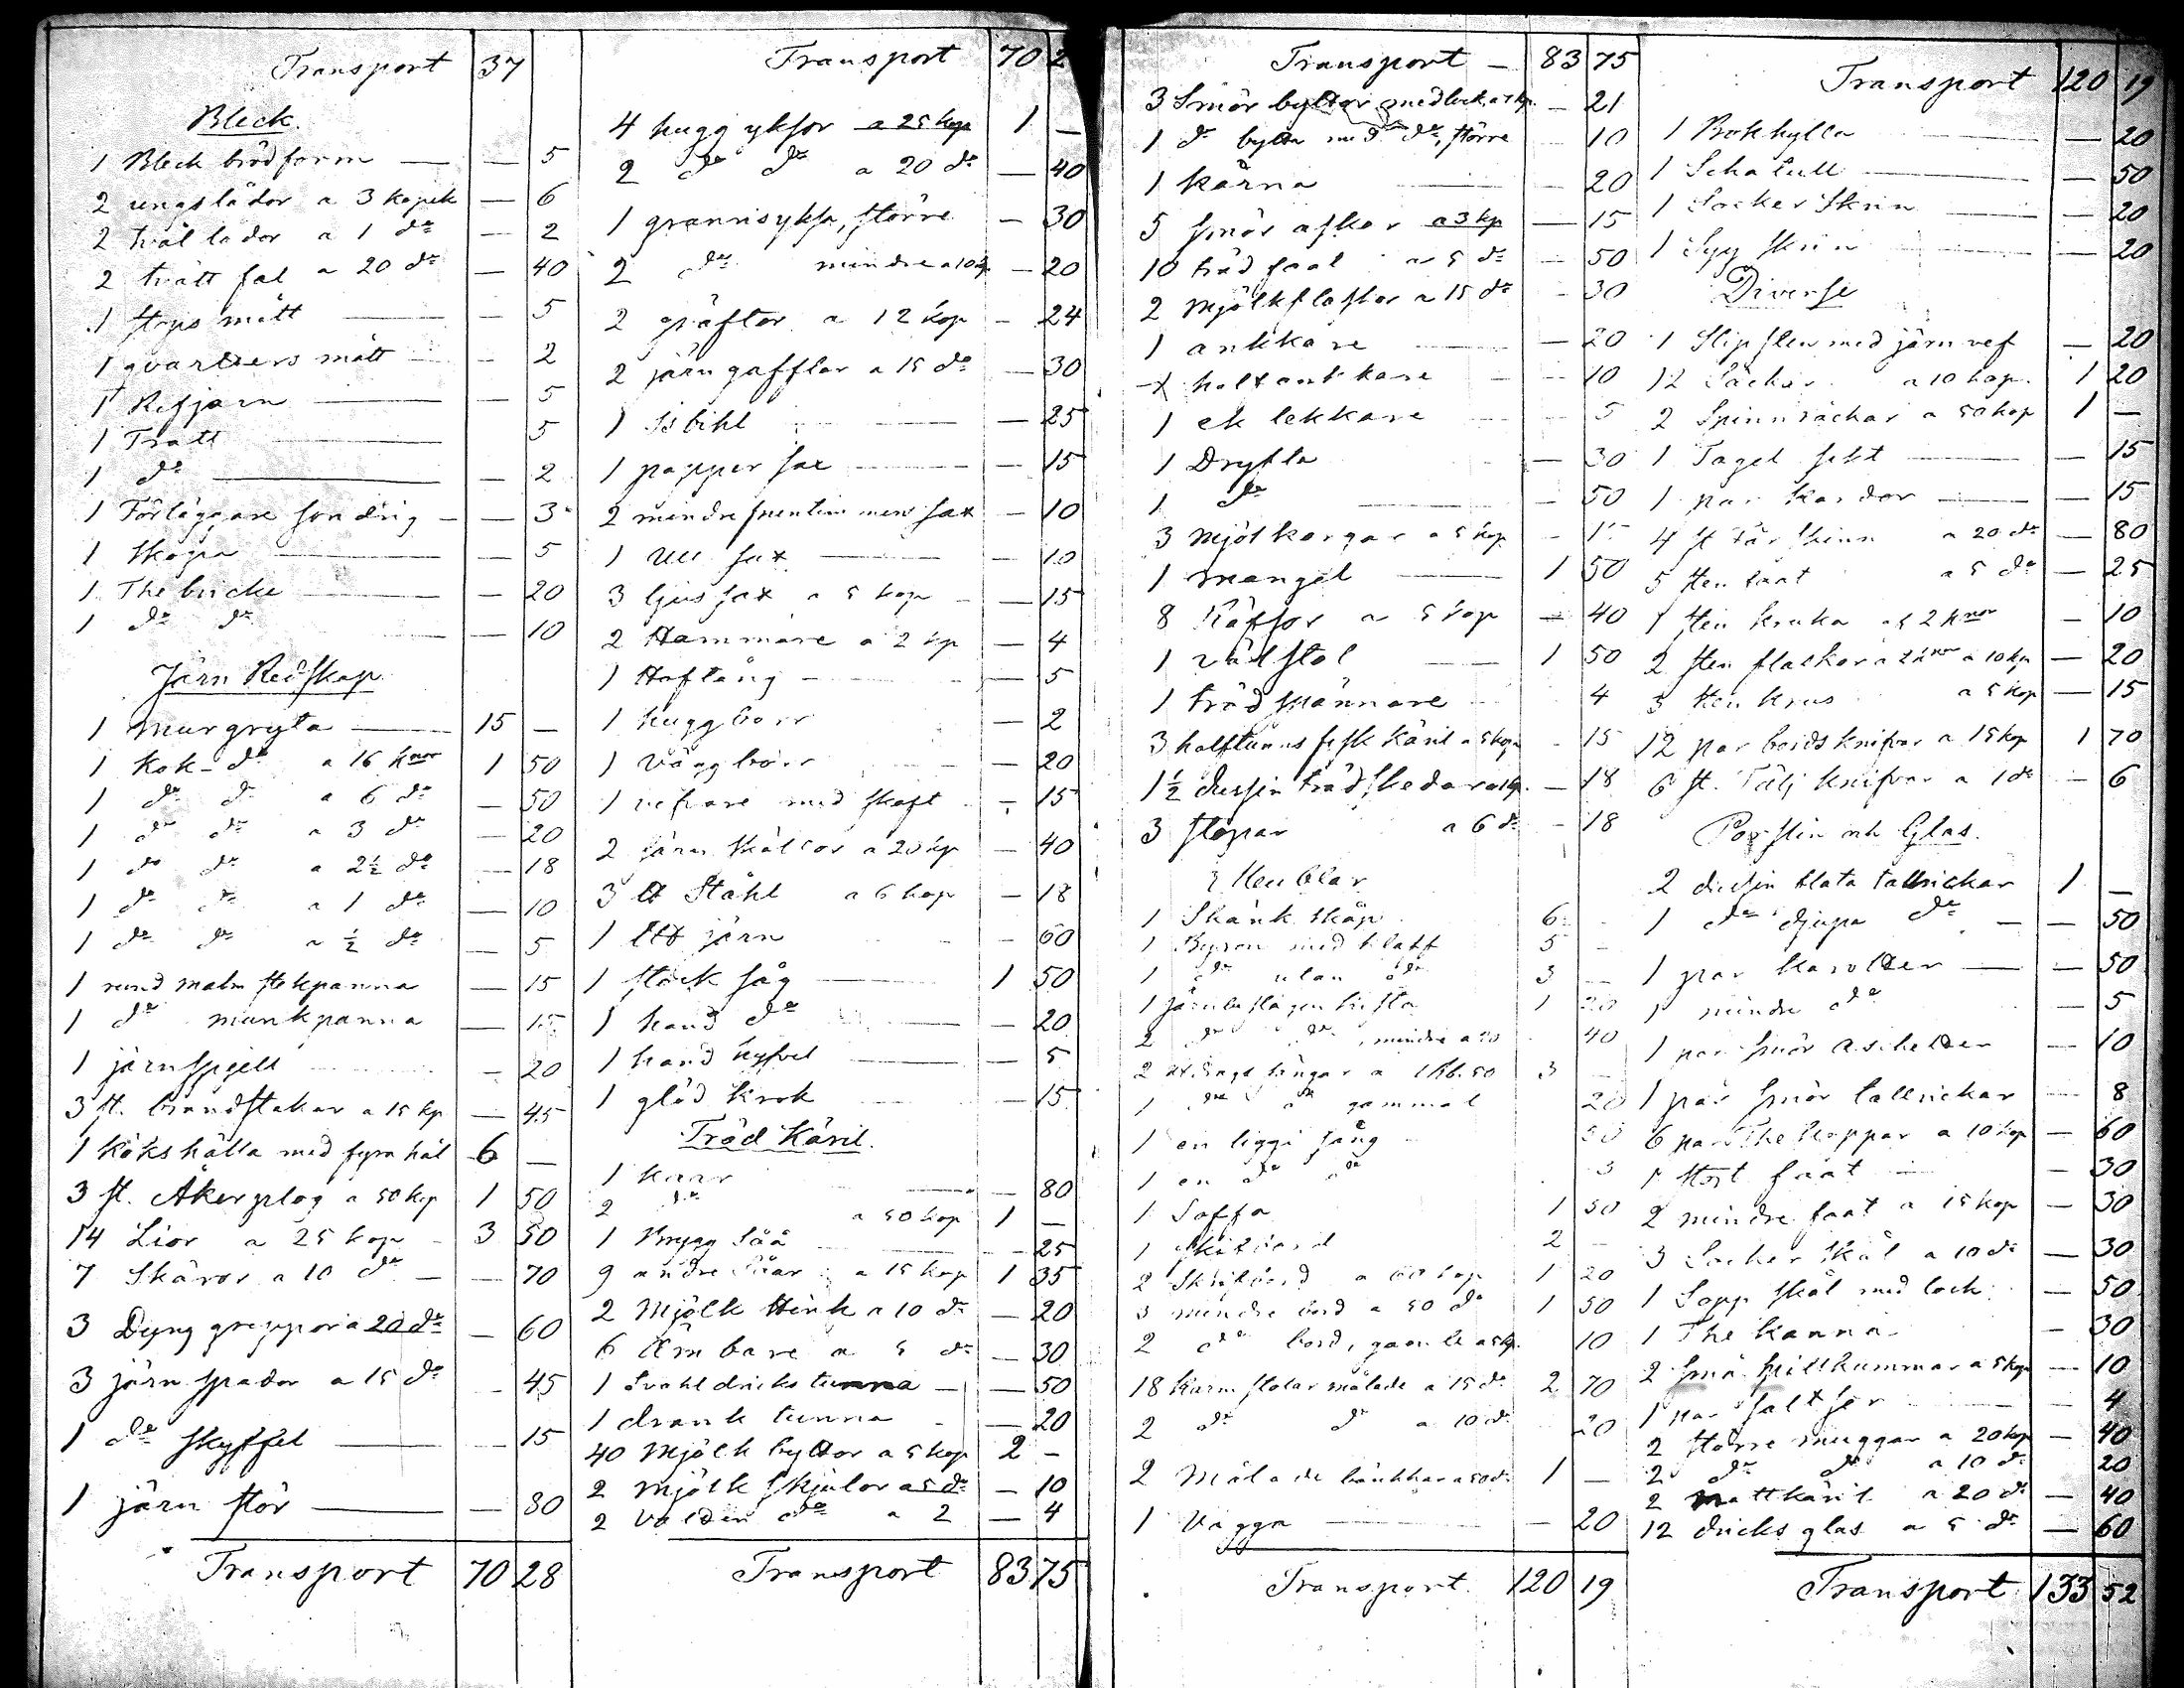 Transport 37
Bleck.
1 Bleck brödform — — 5
2 ungslådor a 3 kopek — 6
2 tvål lådor a 1 do — 2
2 tvätt fat a 20 do — 40
1 stops mått — — 5
1 qvarters mått — — 2
1 Refjärn — — 5
1 Tratt — 5
1 do — — 2
1 Förläggare sondrig — — 3
1 skopa — — 5
1 The bricke — — 20
1 do do — 10
Järn Redskap
1 Murgryta — 15 —
1 Kok- do a 16 knor 1 50
1 do do a 6 do — 50
1 do do a 3 do — 20
1 do do a 2½ do — 18
1 do do a 1 do — 10
1 do do a ½ do — 5
1 rund malm stekpanna — 15
1 do munkpanna — 15
1 järnspjell — 20
3 st. brandstakar a 15 kp — 45
1 kökshälla med fyra hål 6 —
3 st. Åkerplog a 50 kop 1 50
14 Lior a 25 kop 3 50
7 Skäror a 10 do — 70
3 Dyng greppor a 20 do — 60
3 järn spador a 15 do — 45
1 do skyffel — — 15
1 järn stör — — 80
Transport 70 28
Transport 70 2
4 hugg yksor a 25 kop 1 —
2 do do a 20 do — 40
1 grannsyksa, större — 30
2 do mindre a 10 kp — 20
2 gräftor a 12 kop — 24
2 järn gafflar a 15 do — 30
1 Isbihl — — 25
1 papper sax — — 15
2 mindre sax — 10
1 Ull sax — — 10
3 ljus sax a 5 kop — 15
2 Hammare a 2 kp — 4
1 Hoftång — — 5
1 huggborr — 2
1 väggborr — 20
1 nefvare med skaft — 15
2 järn skållor a 20 kp — 40
3 lt Ståhl a 6 kop — 18
1 Ltt järn — 60
1 stock såg — 1 50
1 hand do — — 20
1 hand hyfvel — — 5
1 glöd krok — 15
Träd Käril.
1 karr — — 80
2 do a 50 kop 1 —
1 brygg Såå — 25
9 andre Såar a 15 kop 1 35
2 Mjölk stink a 10 do — 20
6 Ämbare a 5 do — 30
1 Svahldricks tunna — — 50
1 drank tunna — 20
40 Mjölk byttor a 5 kop 2 -
2 mjölk skjulor a 5 do — 10
2 do a 2 — 4
Transport 83 75
Transport — 83 75
3 Smör byttor med lock a 7 kp. — 21
1 do bytta med do, större 10
1 kärna — 20
5 smör askar a 3 kp — 15
10 träd faat a 5 do — 50
2 Mjölkflaskor a 15 do - 30
1 ankkare — 20
1 halfankkare — 10
1 ek lekkare 5
1 Dryfta — 30
1 do — 50
3 Mjöl korgar a 5 kop - 15
1 mangel — 1 50
8 Räfsor a 5 kop — 40
1 väfstol — 1 50
1 träd spännare 4
3 halftunns fisk käril a 5 kop - 15
1½ dussin träd skedar a 1 kp. — 18
3 stopar a 6 do - 18
Meublar
1 Skänk skåp 6 -
1 Byron med klaff 5 -
1 do utan do 3 —
1 järnbeslagen kista 1 20
2 do do, mindre a 20 40
2 sängar a 1 Rb. 50 3 —
1 do do gammal 20
1 en liggi säng 50
1 en do do 3
1 Soffa 1 50
1 2 -
2 Skrifbord a 60 kop 1 20
3 mindre bord a 50 do 1 50
2 do bord, gamle a 5 kp. 10
18 Karm stolar målade a 15 do 2 70
2 do do a 10 do 20
2 Målade bänkkar a 50 do 1 —
1 Vagga — — 20
Transport 120 19
Transport 120 19
1 Bokhylla — 20
1 Schatull — — 50
1 Socker Skrin — — 20
1 Syy skrin — 20
Diverse
1 Slipsten med järn vef — 20
12 Säckar a 10 kop. 1 20
2 Spinnråckar a 50 kop 1 —
1 Tagel sikt — — 15
1 par kardor — — 15
4 st Får skinn a 20 do — 80
5 sten faat a 5 do — 25
1 sten kruka a 2 knor — 10
2 sten flaskor a 2 knor a 10 kp — 20
3 sten krus a 5 kop — 15
12 par bords knifvar a 15 kop 1 70
6 st. Tälj knifvar a 1 do — 6
Porslin och Glas.
2 dussin flata tallrickar 1 —
1 do djupa do — — 50
1 par karotter — — 50
1 mindre do — 5
1 par smör assietter — 10
1 par smör tallrickar — 8
6 par The koppar a 10 kop — 60
1 stort faat — — 30
2 mindre faat a 15 kop — 30
3 Socker skål a 10 do — 30
1 Sopp skål med lock — 50
1 The kanna — 30
2 små spillkummar a 5 kop — 10
1 par saltser — 4
2 större muggar a 20 kop — 40
2 do do a 10 do 20
2 nattkäril a 20 do — 40
12 dricks glas a 5 do — 60
Transport 133 52